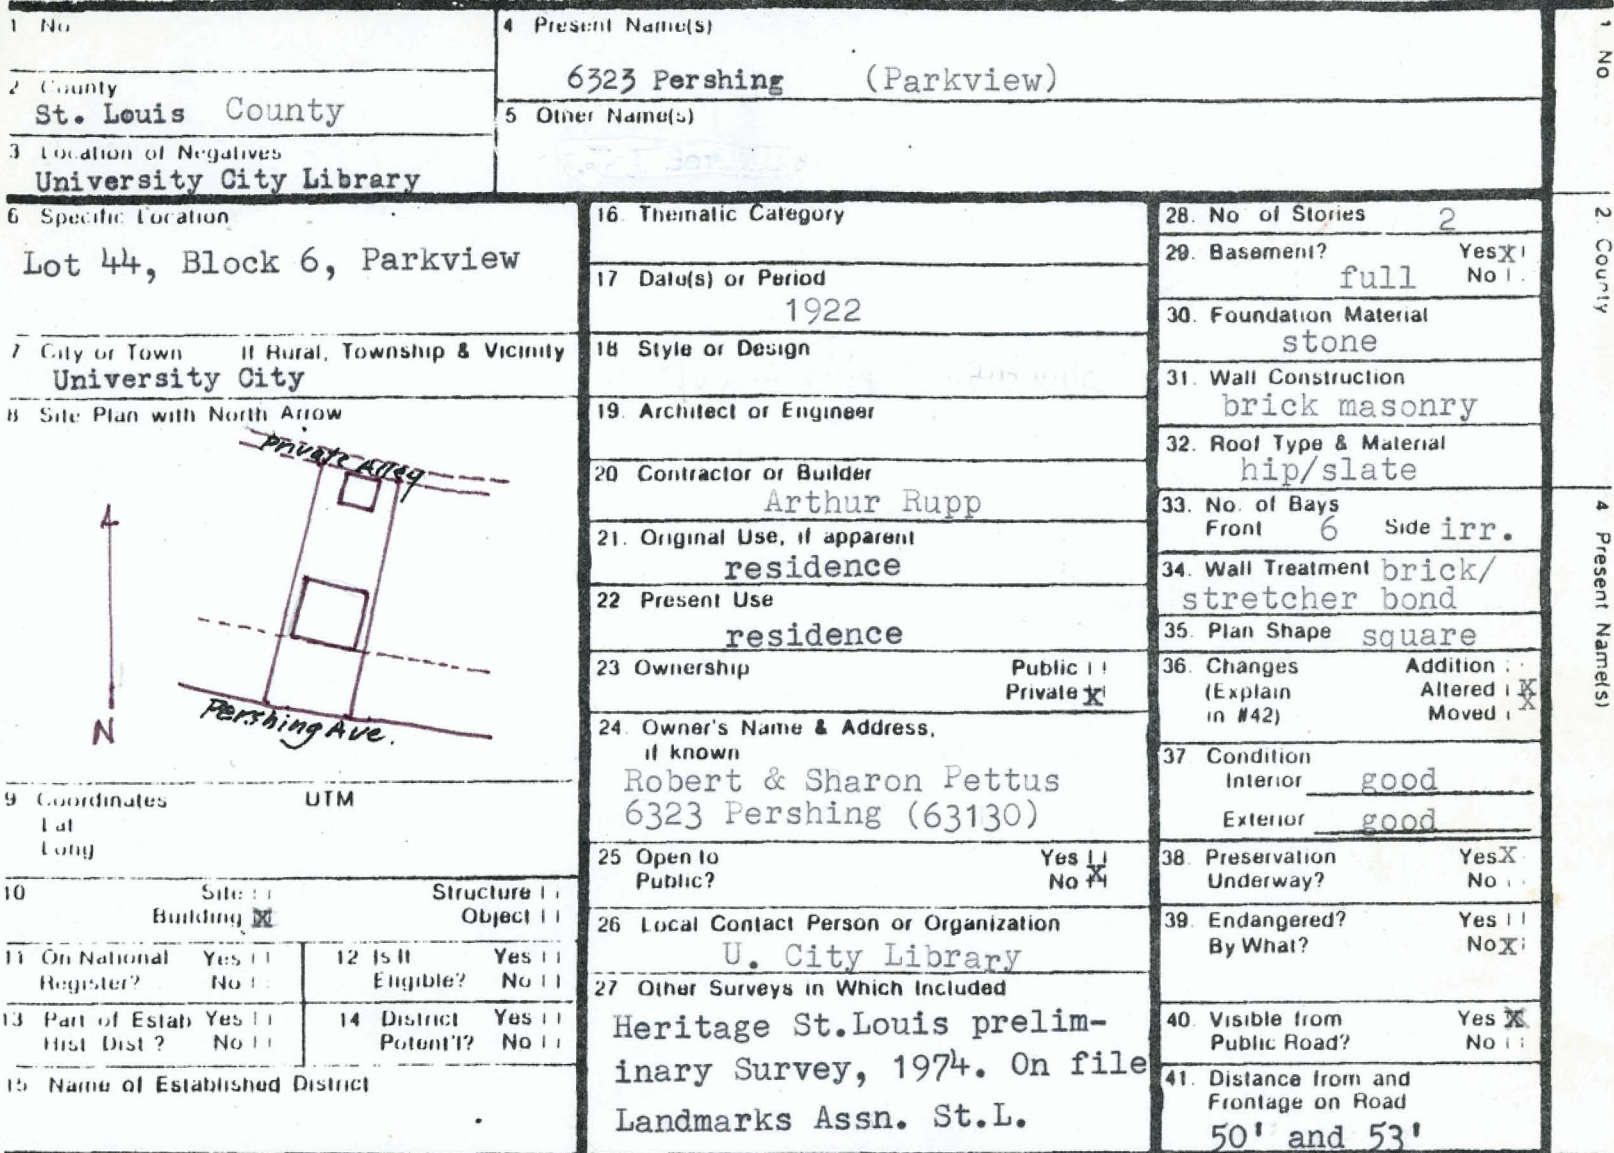 1 No
4 Present Name(s)
6323 Pershing (Parkview)
2 County
St. Louis County
5 Other Name(s)
3 Location of Negatives
University City Library
6 Specific Location
Lot 44, Block 6, Parkview
7 City or Town If Rural, Township & Vicinity
University City
8 Site Plan with North Arrow
Private Alley
N
Pershing Ave.
9 Coordinates UTM
Lat
Long
10 Site Structure
Building X Object
11 On National Register? Yes No
12 Is It Eligible? Yes No
13 Part of Estab Hist Dist? Yes No
14 District Potent'l? Yes No
15 Name of Established District
16. Thematic Category
17 Date(s) or Period
1922
18 Style or Design
19. Architect or Engineer
20 Contractor or Builder
Arthur Rupp
21. Original Use, if apparent
residence
22 Present Use
residence
23 Ownership Public
Private X
24. Owner's Name & Address,
if known
Robert & Sharon Pettus
6323 Pershing (63130)
25 Open to Yes
Public? No X
26 Local Contact Person or Organization
U. City Library
27 Other Surveys in Which Included
Heritage St.Louis prelim-
inary Survey, 1974. On file
Landmarks Assn. St.L.
28. No of Stories 2
29. Basement? Yes X
full No
30. Foundation Material
stone
31. Wall Construction
brick masonry
32. Roof Type & Material
hip/slate
33. No. of Bays
Front 6 Side irr.
34. Wall Treatment brick/
stretcher bond
35. Plan Shape square
36. Changes Addition
(Explain Altered X
in #42) Moved X
37 Condition
Interior good
Exterior good
38. Preservation Yes X
Underway? No
39. Endangered? Yes
By What? No X
40. Visible from Yes X
Public Road? No
41. Distance from and
Frontage on Road
50' and 53'
1 No
2. County
4 Present Name(s)